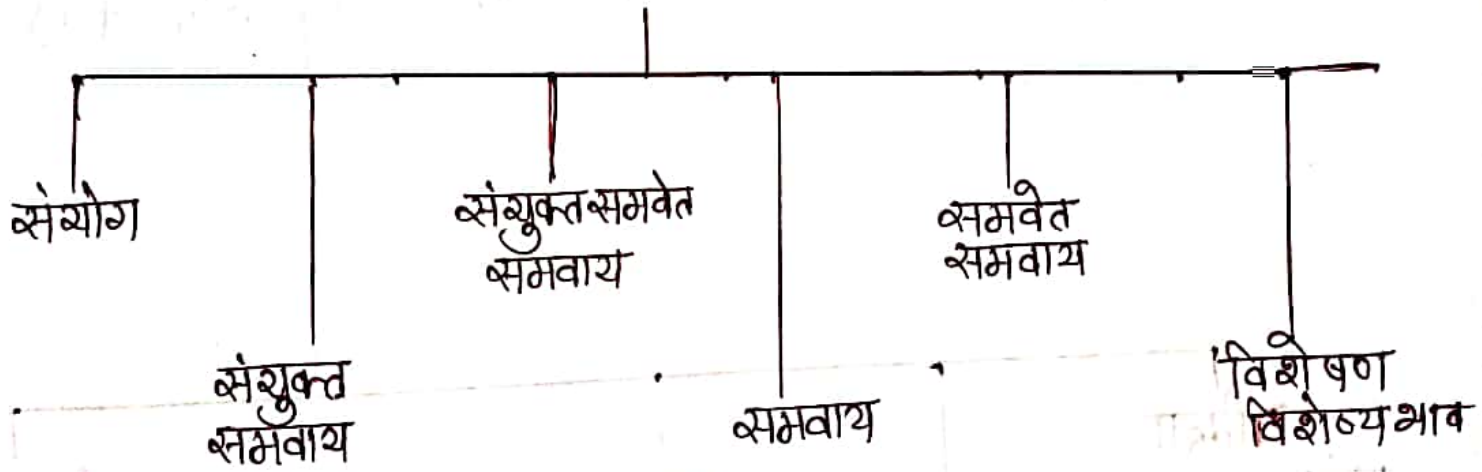 संयोग
संयुक्त
समवाय
संयुक्त समवेत
समवाय
समवाय
समवेत
समवाय
विशेषण
विशेष्य भाव